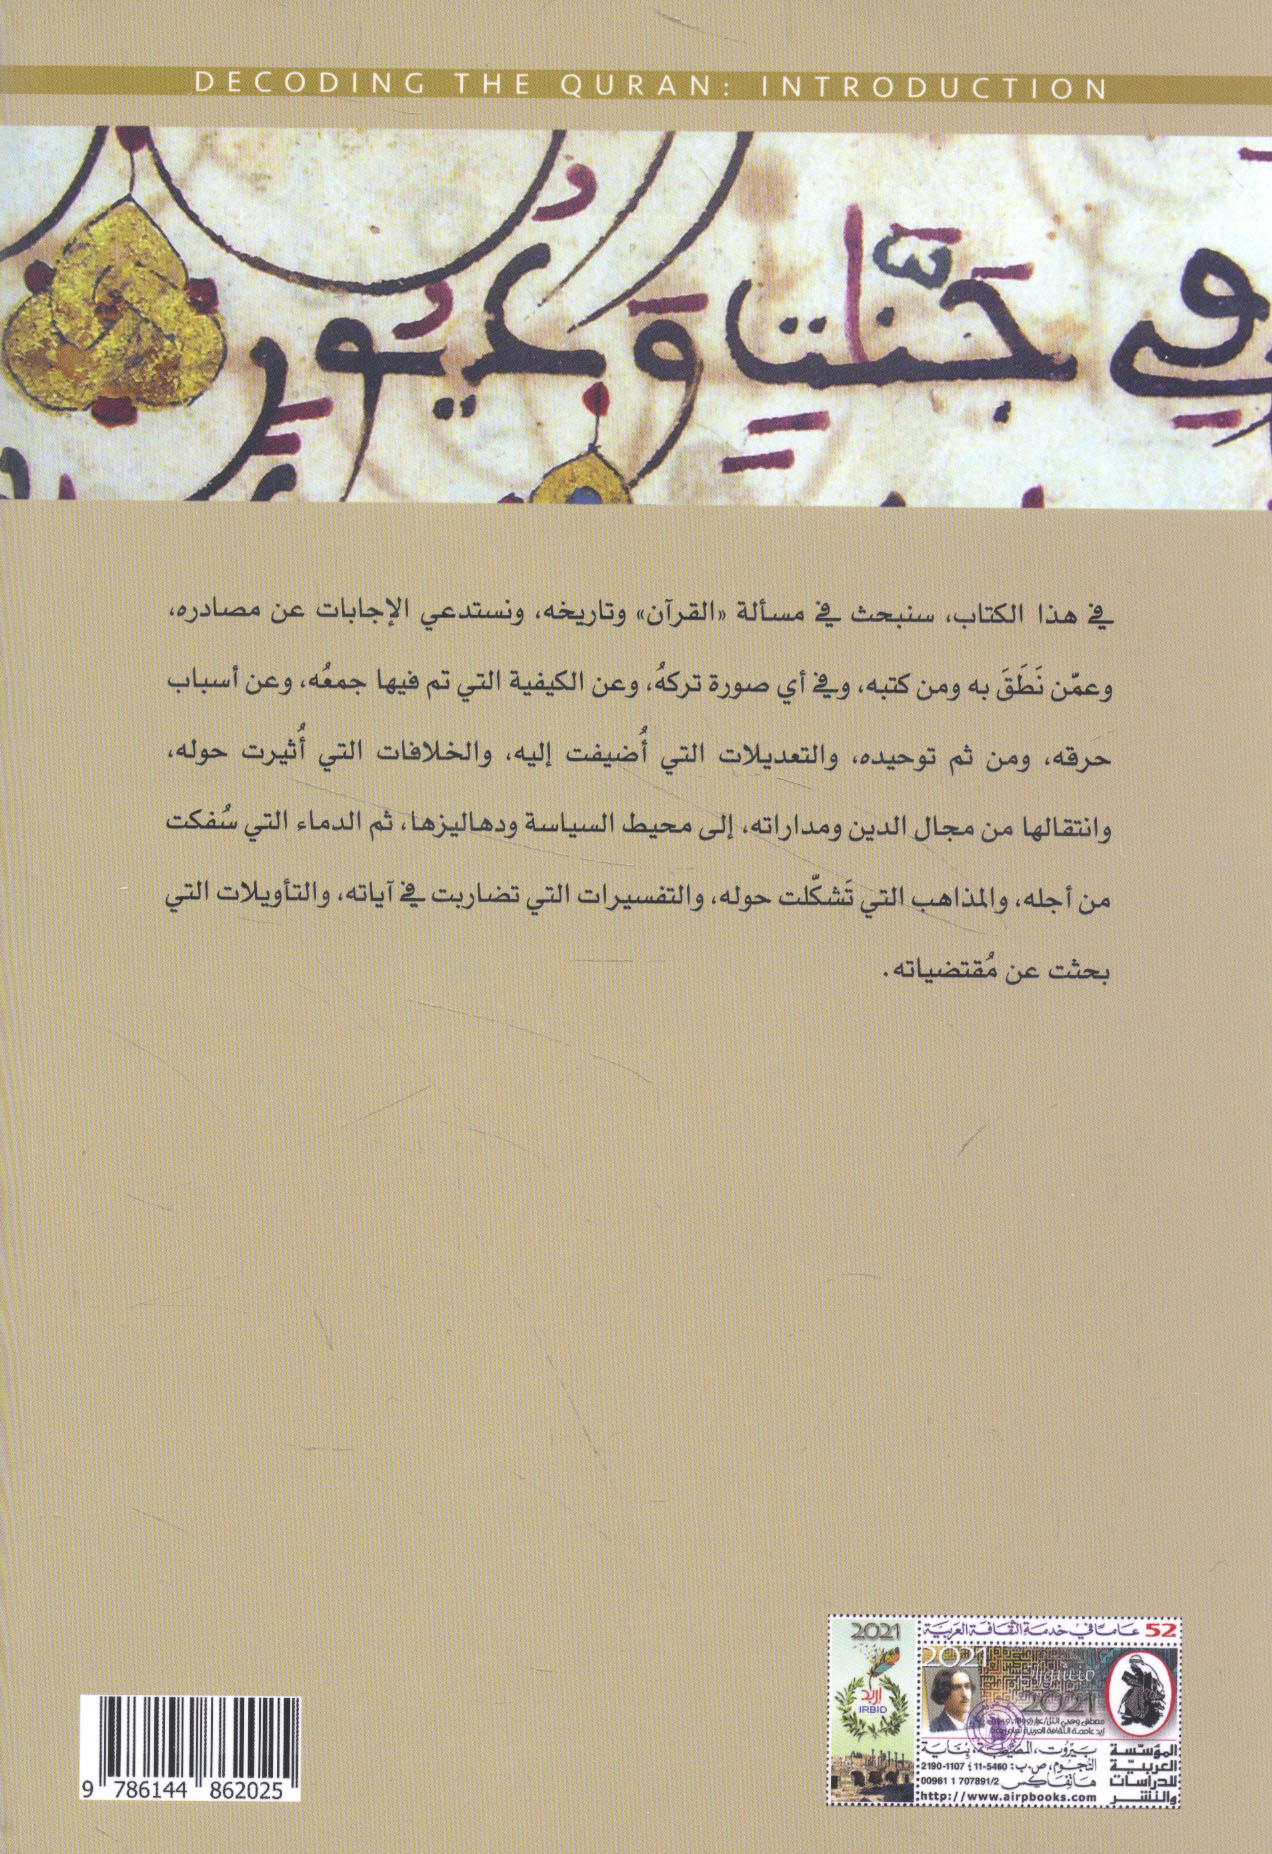 DECODING THE QURAN: INTRODUCTION
في جَنَّتٍ وَعُيُونٍ
في هذا الكتاب، سنبحث في مسألة «القرآن» وتاريخه، ونستدعي الإجابات عن مصادره،
وعمّن نَطَقَ به ومن كتبه، وفي أي صورة تركهُ، وعن الكيفية التي تم فيها جمعُه، وعن أسباب
حرقه، ومن ثم توحيده، والتعديلات التي أُضيفت إليه، والخلافات التي أُثيرت حوله،
وانتقالها من مجال الدين ومداراته، إلى محيط السياسة ودهاليزها، ثم الدماء التي سُفكت
من أجله، والمذاهب التي تَشكّلت حوله، والتفسيرات التي تضاربت في آياته، والتأويلات التي
بحثت عن مُقتضياته.
9 786144 862025
52 عاماً في خدمة الثقافة العربية
2021
2021
2021
اربد
IRBID
المؤسسة
العربية
للدراسات
والنشر
بيروت، المصيطبة، بناية
النجوم، ص.ب: 5460-11؛ 1107-2190
هاتفاكس 00961 1 707891/2
http://www.airpbooks.com